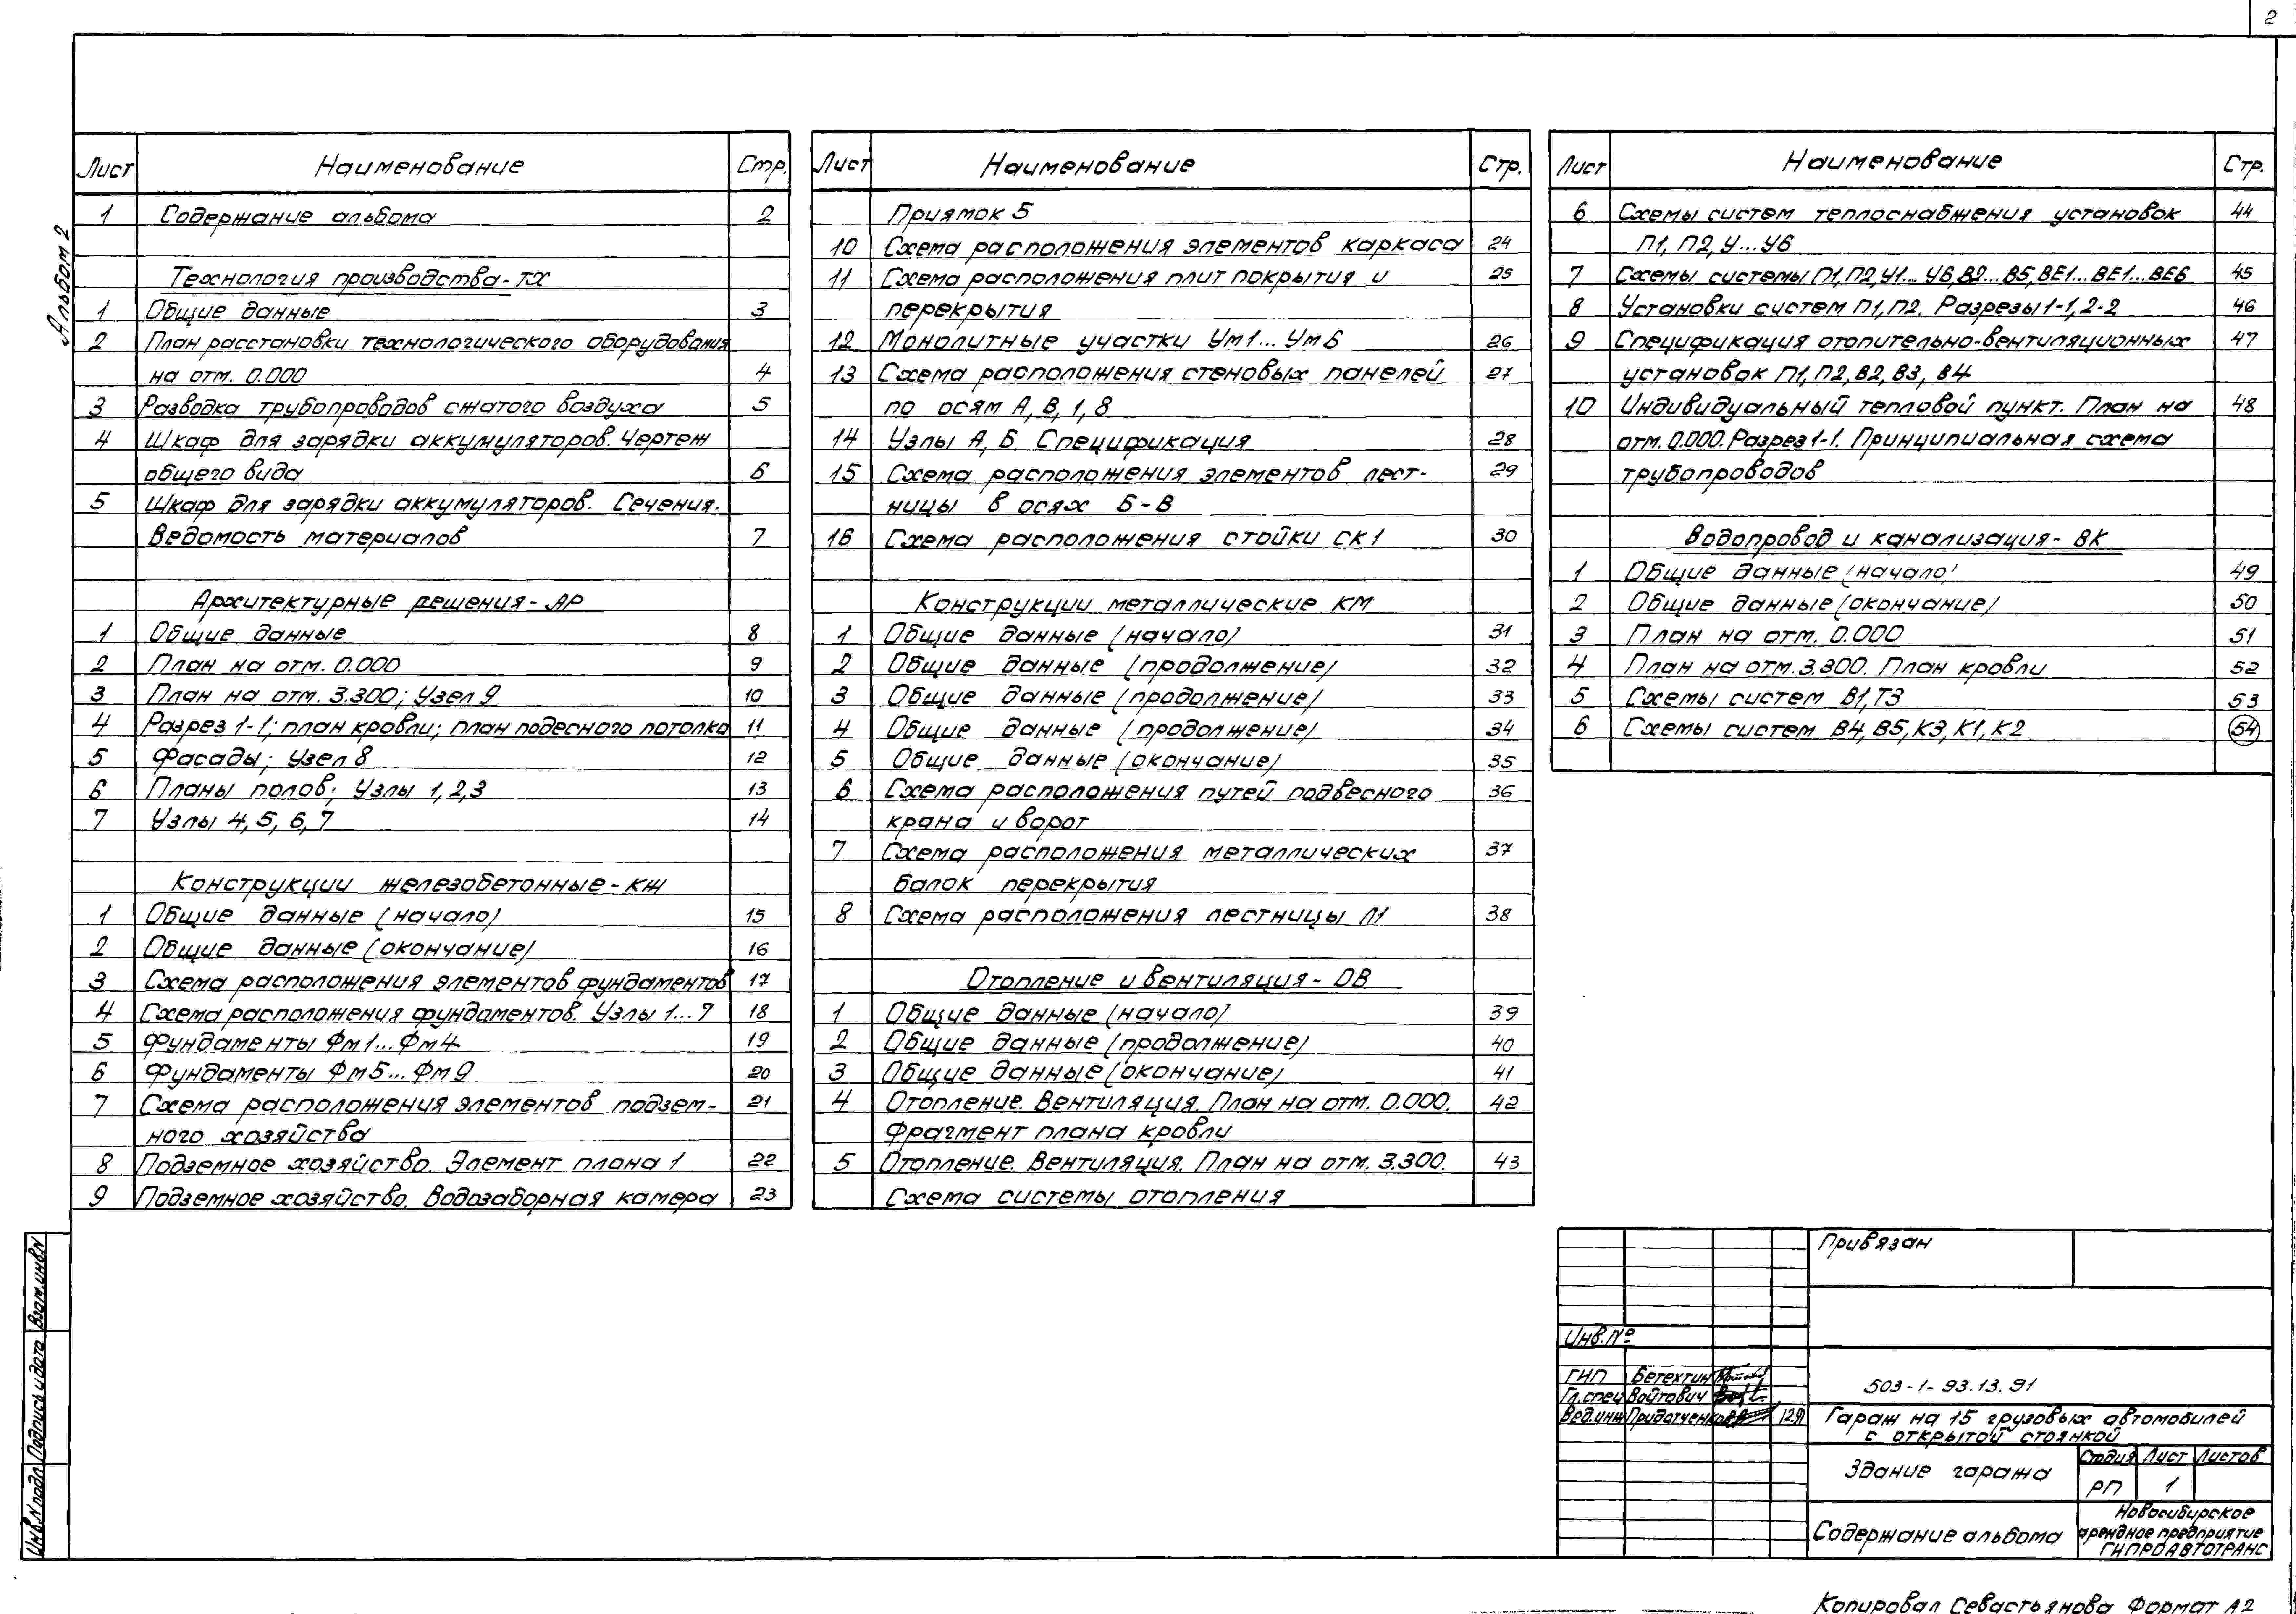 2
Альбом 2
Лист Наименование Стр.
1 Содержание альбома 2
Технология производства-ТХ
1 Общие данные 3
2 План расстановки технологического оборудования
на отм. 0.000 4
3 Разводка трубопроводов сжатого воздуха 5
4 Шкаф для зарядки аккумуляторов. Чертеж
общего вида 6
5 Шкаф для зарядки аккумуляторов. Сечения.
Ведомость материалов 7
Архитектурные решения-АР
1 Общие данные 8
2 План на отм. 0.000 9
3 План на отм. 3.300; Узел 9 10
4 Разрез 1-1; план кровли; план подесного потолка 11
5 Фасады; Узел 8 12
6 Планы полов; Узлы 1,2,3 13
7 Узлы 4, 5, 6, 7 14
Конструкции железобетонные-КЖ
1 Общие данные (начало) 15
2 Общие данные (окончание) 16
3 Схема расположения элементов фундаментов 17
4 Схема расположения фундаментов. Узлы 1...7 18
5 Фундаменты Фм1...Фм4 19
6 Фундаменты Фм5...Фм9 20
7 Схема расположения элементов подзем- 21
ного хозяйства
8 Подземное хозяйство. Элемент плана 1 22
9 Подземное хозяйство. Водозаборная камера 23
Лист Наименование Стр.
Приямок 5
10 Схема расположения элементов каркаса 24
11 Схема расположения плит покрытия и 25
перекрытия
12 Монолитные участки Ум1...Ум6 26
13 Схема расположения стеновых панелей 27
по осям А, В, 1, 8
14 Узлы А, Б. Спецификация 28
15 Схема расположения элементов лест- 29
ницы в осях Б-В
16 Схема расположения стойки СК1 30
Конструкции металлические КМ
1 Общие данные (начало) 31
2 Общие данные (продолжение) 32
3 Общие данные (продолжение) 33
4 Общие данные (продолжение) 34
5 Общие данные (окончание) 35
6 Схема расположения путей подвесного 36
крана и ворот
7 Схема расположения металлических 37
балок перекрытия
8 Схема расположения лестницы Л1 38
Отопление и вентиляция-ОВ
1 Общие данные (начало) 39
2 Общие данные (продолжение) 40
3 Общие данные (окончание) 41
4 Отопление. Вентиляция. План на отм. 0.000. 42
Фрагмент плана кровли
5 Отопление. Вентиляция. План на отм. 3.300. 43
Схема системы отопления
Лист Наименование Стр.
6 Схемы систем теплоснабжения установок 44
П1, П2, У...У6
7 Схемы системы П1,П2,У1...У6,В2...В5,ВЕ1...ВЕ1...ВЕ6 45
8 Установки систем П1,П2. Разрезы 1-1,2-2 46
9 Спецификация отопительно-вентиляционных 47
установок П1, П2, В2, В3, В4
10 Индивидуальный тепловой пункт. План на 48
отм. 0.000. Разрез 1-1. Принципиальная схема
трубопроводов
Водопровод и канализация-ВК
1 Общие данные (начало) 49
2 Общие данные (окончание) 50
3 План на отм. 0.000 51
4 План на отм. 3.300. План кровли 52
5 Схемы систем В1,Т3 53
6 Схемы систем В4, В5, К3, К1, К2 54
Привязан
Инв. №
ГИП Бетехтин
Гл.спец Войтович
Вед.инж Придатченко 12.91
503-1-93.13.91
Гараж на 15 грузовых автомобилей
с открытой стоянкой
Здание гаража
Стадия Лист Листов
РП 1
Содержание альбома
Новосибирское
арендное предприятие
ГИПРОАВТОТРАНС
Инв.№подл Подпись и дата Взам.инв.№
Копировал Севастьянова Формат А2